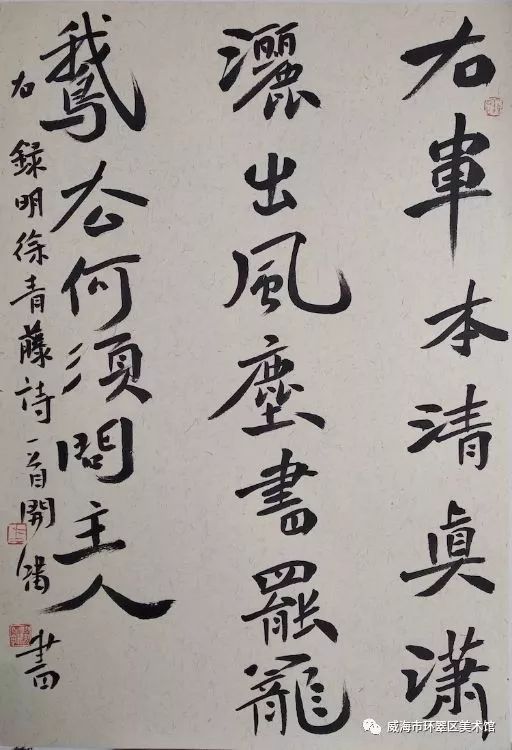 右軍本清真瀟
灑出風塵書罷籠
鵝厺何須問主人
右錄明徐青藤詩一首開書
威海市环翠区美术馆